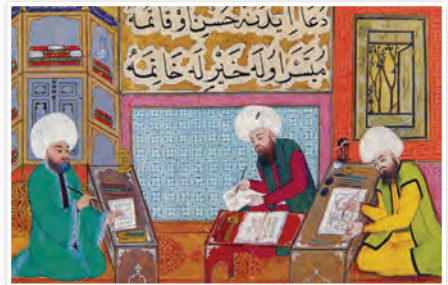 دعا ايدنه حسن و قائمه
مبشر اوله خير له خاتمه